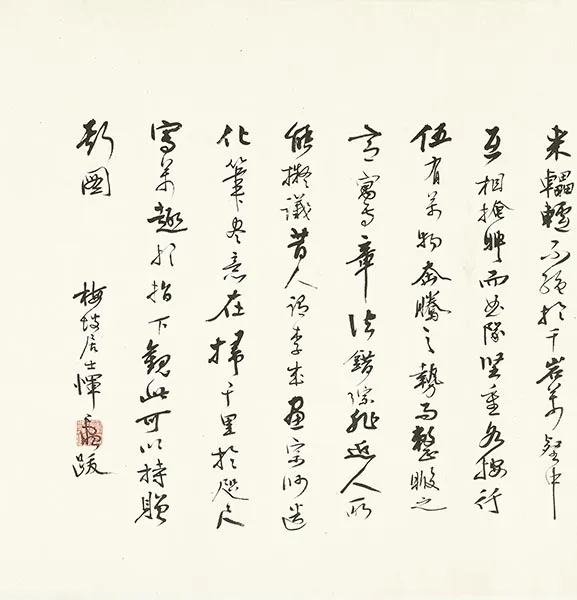 来轠轤不絕於千岩萬壑中
互相掩映而隊堅重各按行
伍有萬物奔騰之勢而整暇之
意寓焉章法錯綜非近人所
能擬議昔人謂李成畫宗師造
化筆尽意在掃千里於咫尺
寫萬趣於指下觀此可以持贈
斯圖
梅坡居士惲跋